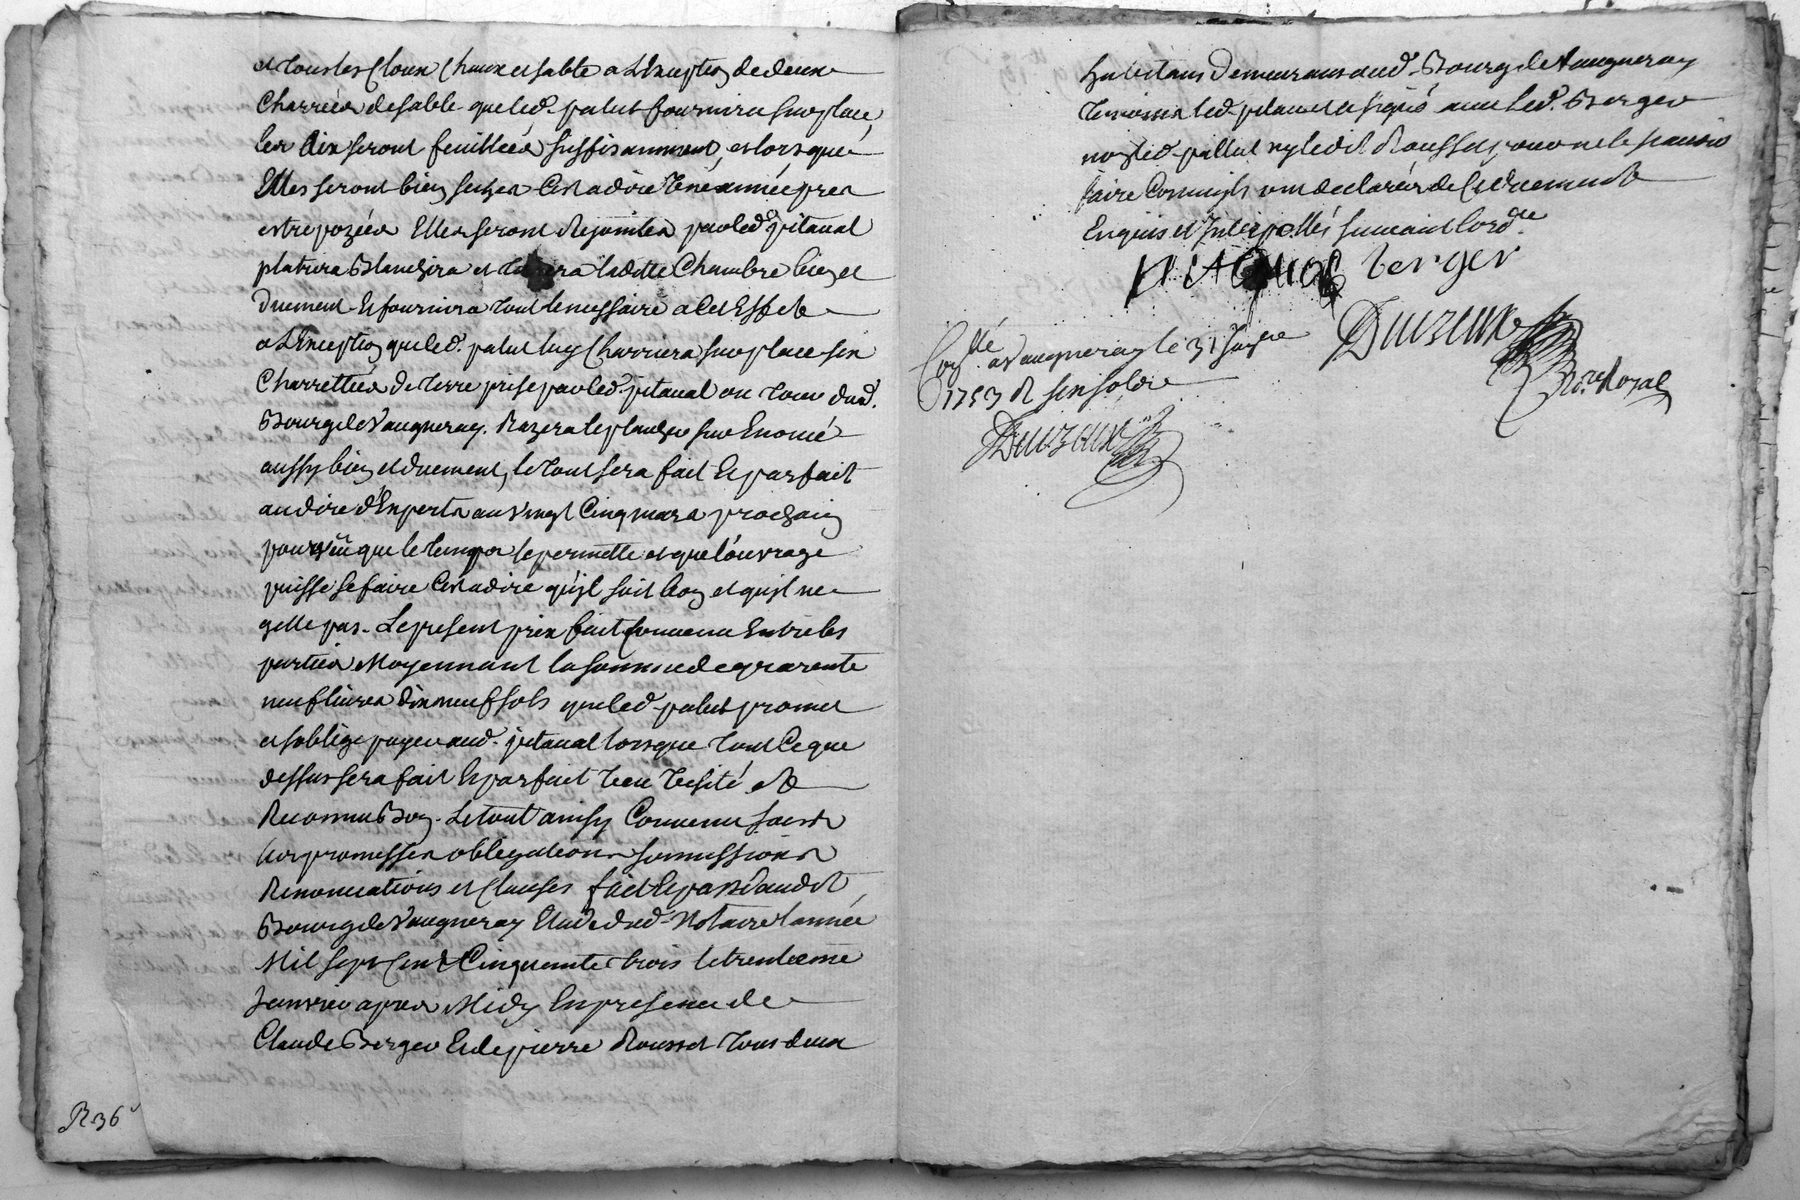 et tous les cloux chaux et sable a L'Exception de deux
Charrées de sable que led. palut fournira sur place,
les aix seront feuillées suffisamment, et lorsque
Elles seront bien seches C'est a dire Une année pres
estre pozées Elles seront Rejointes par led. pitaval
platrira Blanchira et la ditte Chambre bien et
Duement Et fournira tout le necessaire a Cet Effet
a L'Exception que led. palut luy Charriera sur place six
Charrettées de terre prise par led. pitaval au tour dud.
Bourg de Vaugneray. Razera le plancher sur
aussy bien et duement, le tout sera fait Et parfait
au dire d'Experts au Vingt Cinq mars prochain
pourveü que le temps le permette et que l'ouvrage
puisse se faire C'est a dire qu'il soit bon et qu'il ne
gelle pas. Le present prix fait Convenu Entre les
parties Moyennant la somme de quarante
neuf livres dix neuf sols que led. palut promet
et s'oblige payer aud. pitaval lorsque tout Ce que
dessus sera fait Et parfait Veu Visité et
Reconnu Bon. Le tout ainsy Convenu
par promesses obligations soumissions
Renonciations et Clauses fait Et passé audit
Bourg de Vaugneray Etude dud. Notaire l'année
Mil sept Cent Cinquante trois le trentieme
Janvier apres Midy En presence de
Claude Berger Et de pierre Rousset tous deux
R 36
habitans Demeurans aud. Bourg de Vaugneray
temoins led. pitaval a signé avec led. Berger
non led. pallut ny ledit Rousset pour ne le scavoir
faire Comm'ils ont declarés de Ce Duement
Enquis et Interpellés suivant l'ord.ce
berger
Duvzeux
No.re Royal
Con.llé a Vaugneray le 31 Janv.er
1753 R six sols
Duvzeux